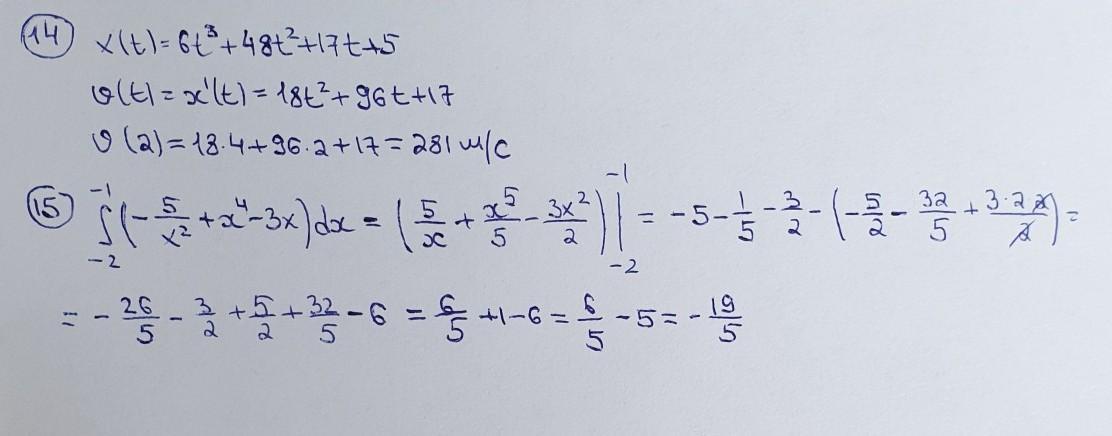 14 x(t)=6t³+48t²+17t+5
v(t)=x'(t)=18t²+96t+17
v(2)=18·4+96·2+17=281 м/с
15 ∫₋₂⁻¹(-5/x²+x⁴-3x)dx=(5/x+x⁵/5-3x²/2)|₋₂⁻¹=-5-1/5-3/2-(-5/2-32/5+3·2·2/2)=
=-26/5-3/2+5/2+32/5-6=6/5+1-6=6/5-5=-19/5